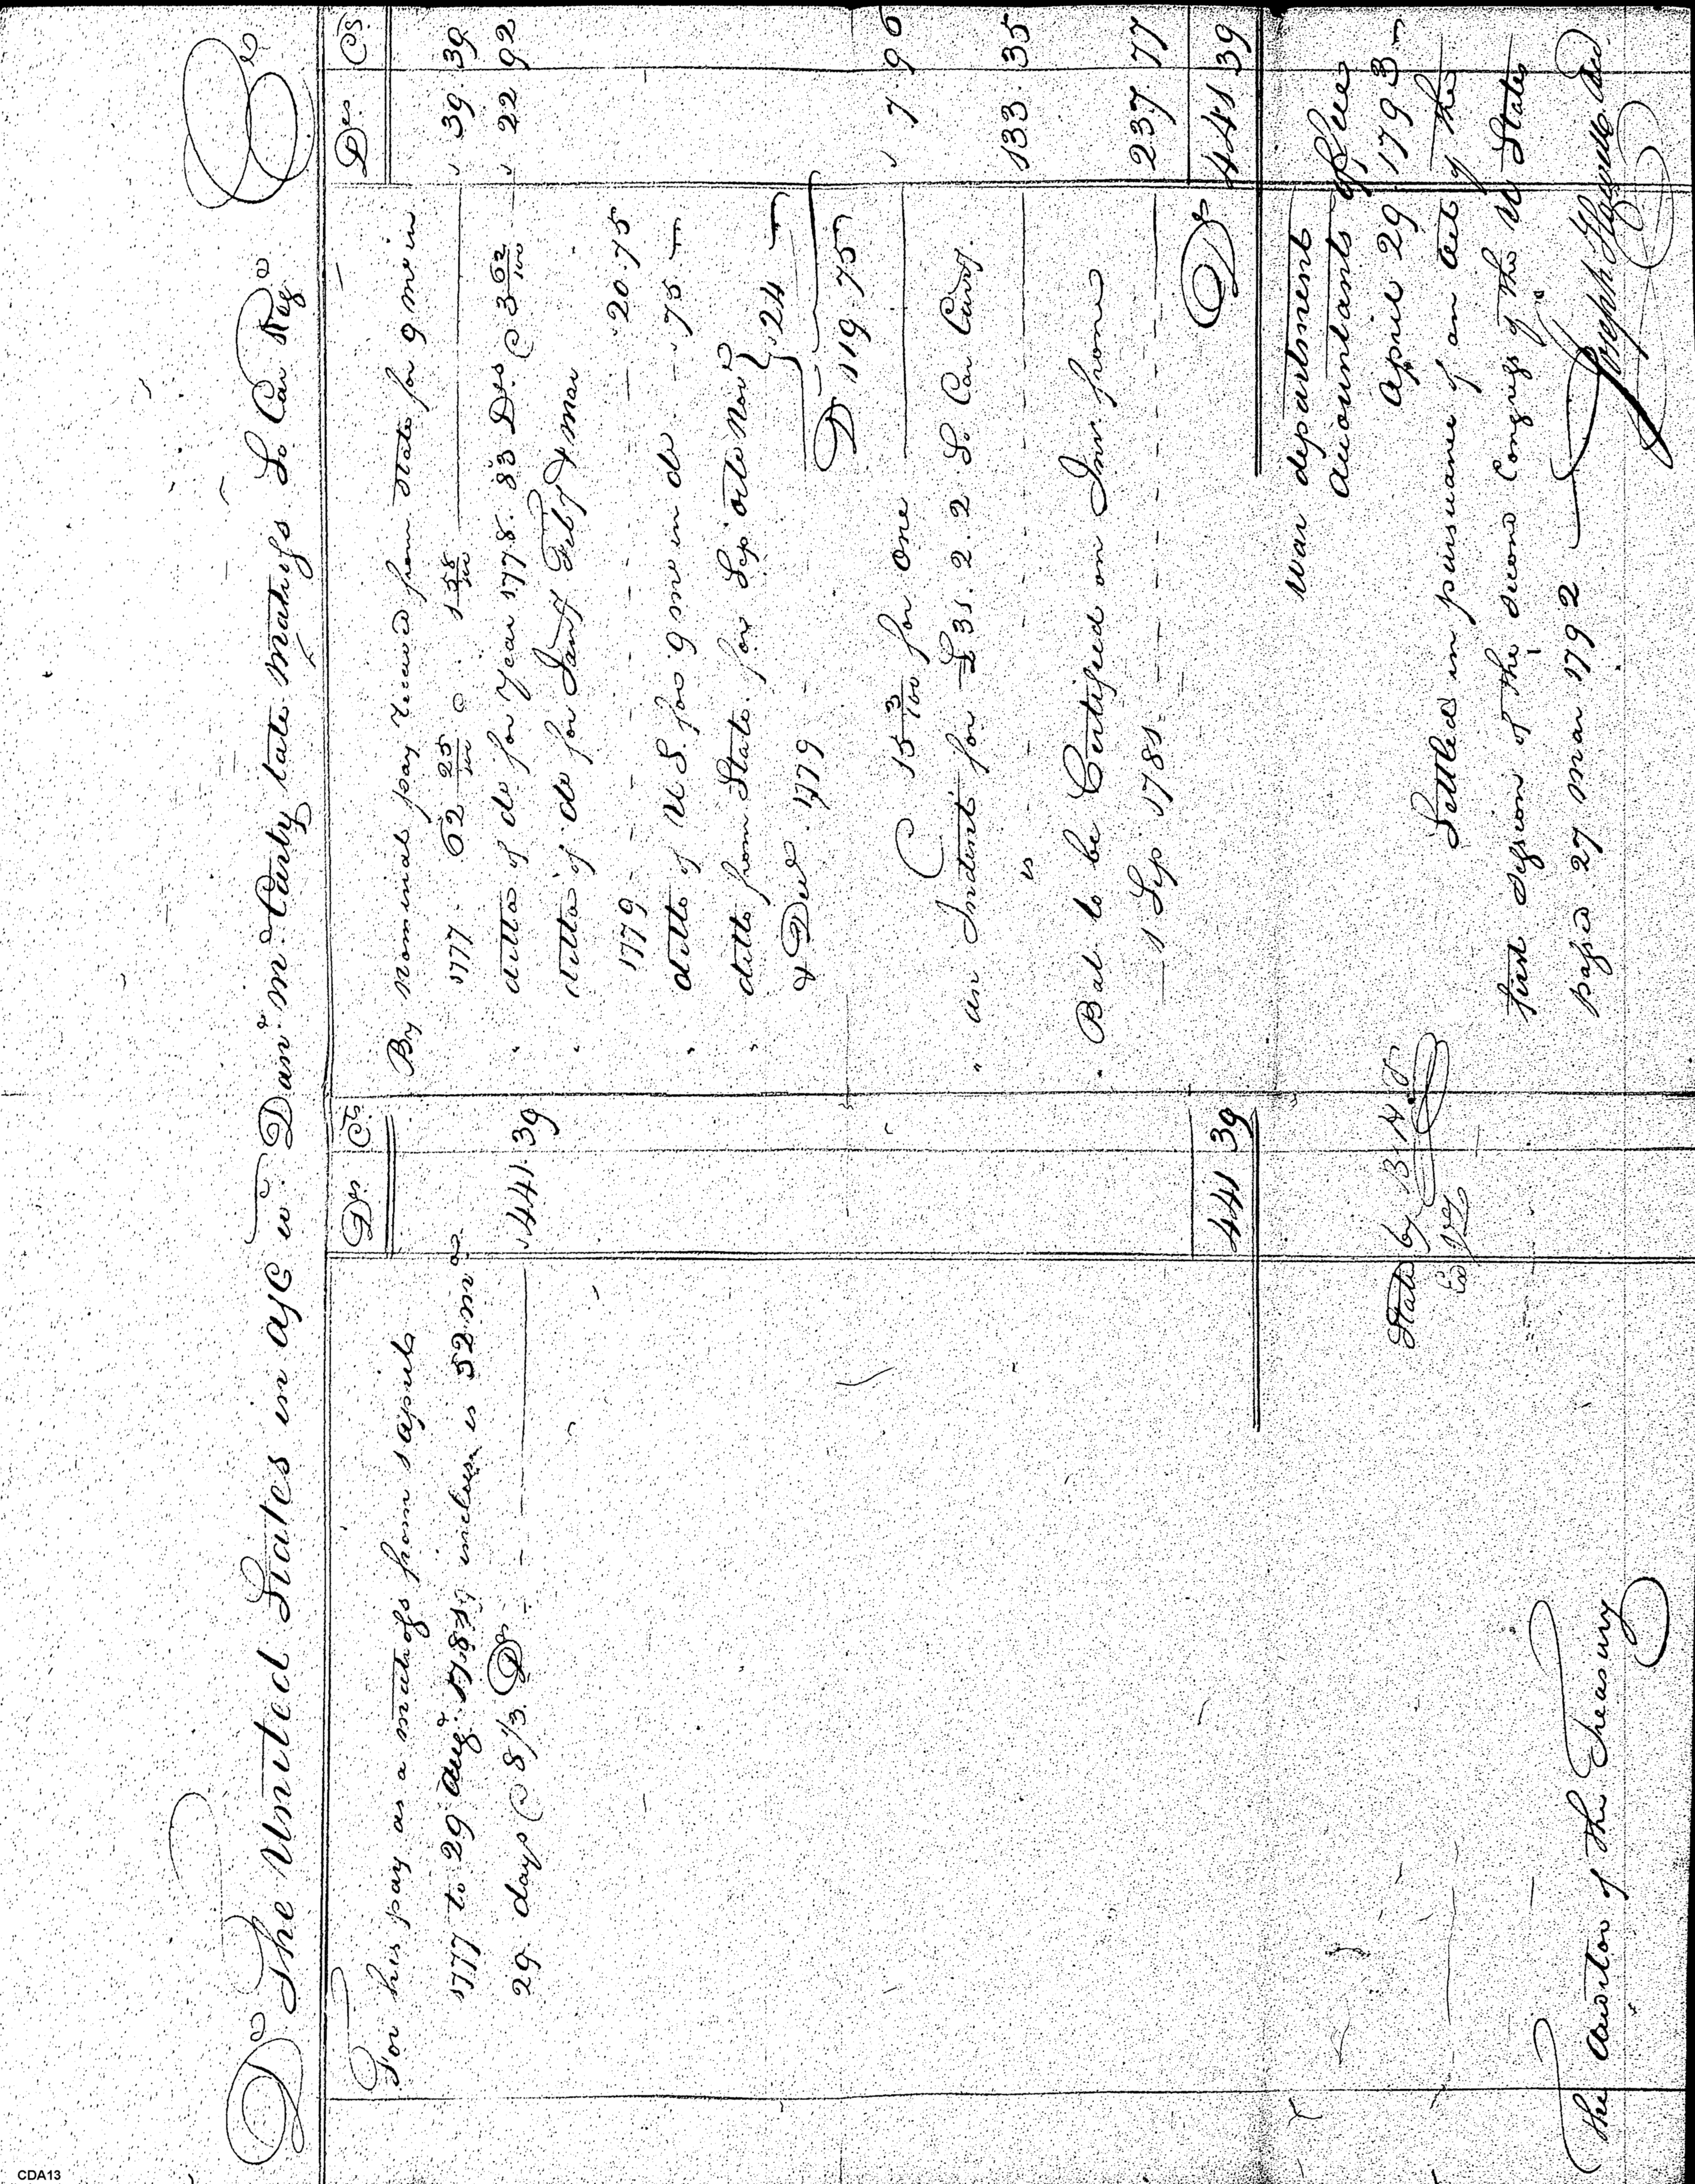 Dr The United States in a/c wt. Danl McCarty late matross So Car Regt Cr
Drs Cts
For his pay as a matross from 1 april
1777 to 29 Augt 1781 inclus. is 52 mo
29 days @ 8 1/3 Ds 441. 39
441 39
Drs Cts
By Nominal pay received from State for 9 mo in
1777. 62 25/100 @ 1 58/100 39. 39
ditto of do for Year 1778. 83 Drs @ 3 62/100 22 92
ditto of do for Jany Feby & Mar
1779 20. 75
ditto of U S. for 9 mo in do 75
ditto from State for Sep Octo Nov
& Decr. 1779 24
D 119. 75
@ 15 3/100 for one 7. 96
" an Indent for £ 31. 2. 2 So. Car Curry.
is 133. 35
Bal to be Certified on Int. from
1 Sep 1781 237 77
D 441 39
War department
Accountants office
April 29. 1793
Settled in pursuance of an act of the
first session of the second Congress of the U States
passed 27 Mar 1792
Joseph Howell
Stated by
Ex
The Auditor of the Treasury
CDA13